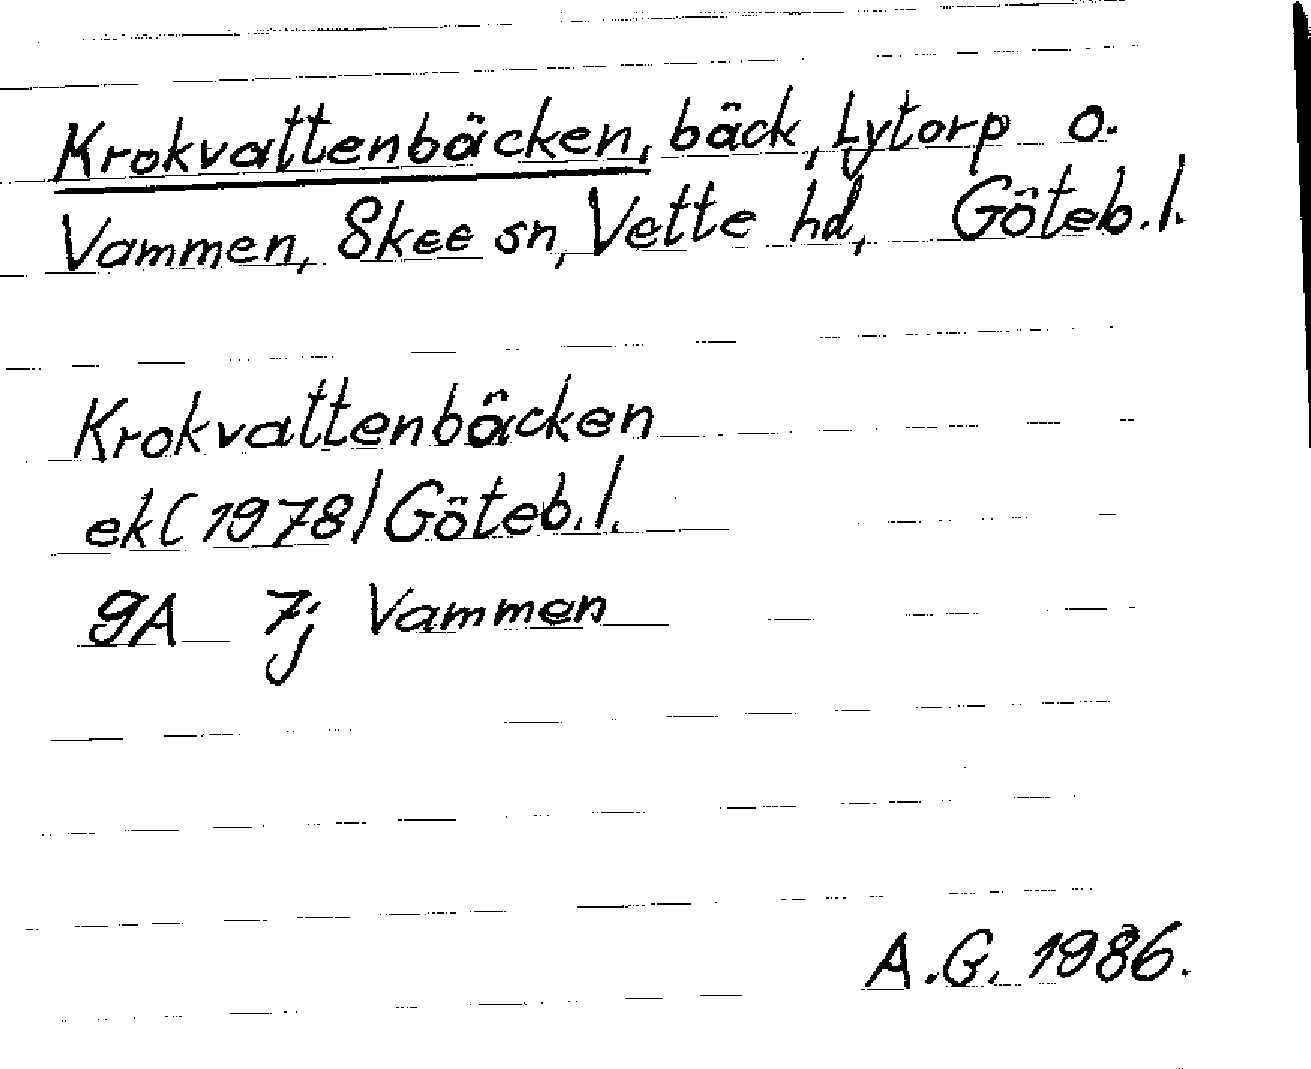 Krokvattenbäcken, bäck, Lytorp o.
Vammen, Skee sn, Vette hd, Göteb. l.
Krokvattenbäcken
ek (1978) Göteb. l.
9A 7j Vammen
A.G. 1986.